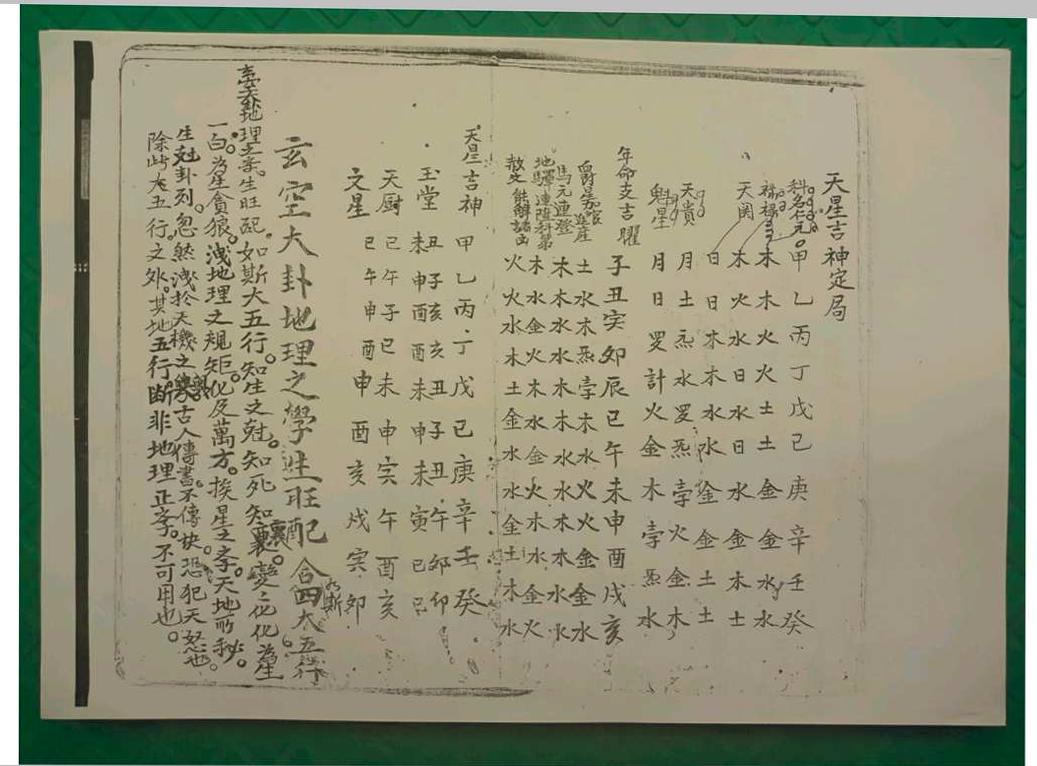 天星吉神定局
科名仁元 甲乙丙丁戊己庚辛壬癸
木木火火土土金金水水
天図 木火水日水日水金木土
日日木木水水金金土土
天貴 月土炁水罗炁孛火金木
魁星 月日罗計火金木孛炁水
年命支吉曜 子丑寅卯辰巳午未申酉戌亥
爵 土水木炁孛木水火火金金水
馬元連登 木木水水木木水水木木水水
地驛連陞科第 木水金火木水金火木水金火
散文能解諸凶 火火水木土金水水金土木水
天星吉神 甲乙丙丁戊己庚辛壬癸
玉堂 丑子亥亥丑子丑午卯卯
未申酉酉未申未寅巳巳
天厨 巳午子巳未申寅午酉亥
文星 巳午申酉申酉亥戌寅卯
玄空大卦地理之學生旺配合四大五行
天地理之字生旺配如斯大五行知生之尅知死知變化化為星
一白為星貪狼洩地理之規矩化及萬方挨星之字天地所秘
生尅卦列忽然洩於天機之古人傳書不傳訣恐犯天怒也
除此大五行之外其地五行斷非地理正字不可用也